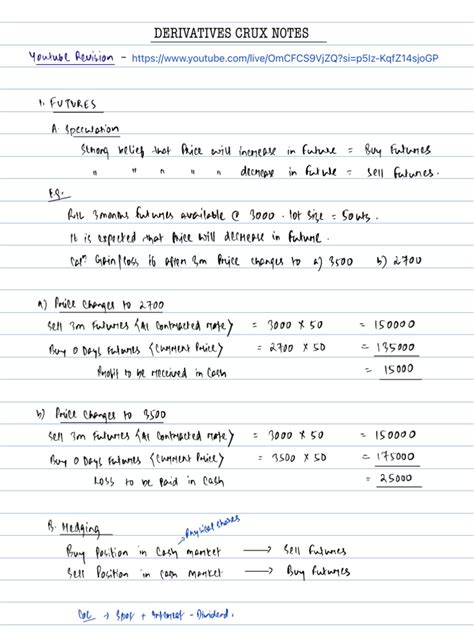 DERIVATIVES CRUX NOTES
Youtube Revision - https://www.youtube.com/live/OmCFCS9VjZQ?si=p5Iz-KqfZ14sjoGP
1. FUTURES
A. Speculation
Strong belief that Price will increase in Future = Buy Futures
" " " " " decrease in Future = Sell Futures.
Eg.
RIL 3months Futures available @ 3000. lot size = 50uts.
It is expected that Price will decrease in future.
Calⁿ Gain/loss if after 3m Price changes to a) 3500 b) 2700
a) Price Changes to 2700
Sell 3m Futures (At Contracted Rate) = 3000 × 50 = 150000
Buy 0 Days Futures (Current Price) = 2700 × 50 = 135000
Profit to be received in Cash = 15000
b) Price Changes to 3500
Sell 3m Futures (At Contracted Rate) = 3000 × 50 = 150000
Buy 0 Days Futures (Current Price) = 3500 × 50 = 175000
Loss to be Paid in Cash = 25000
B. Hedging
Physical Shares
Buy Position in Cash market → Sell Futures
Sell Position in Cash market → Buy Futures
CoC → Spot + Interest - Dividend.